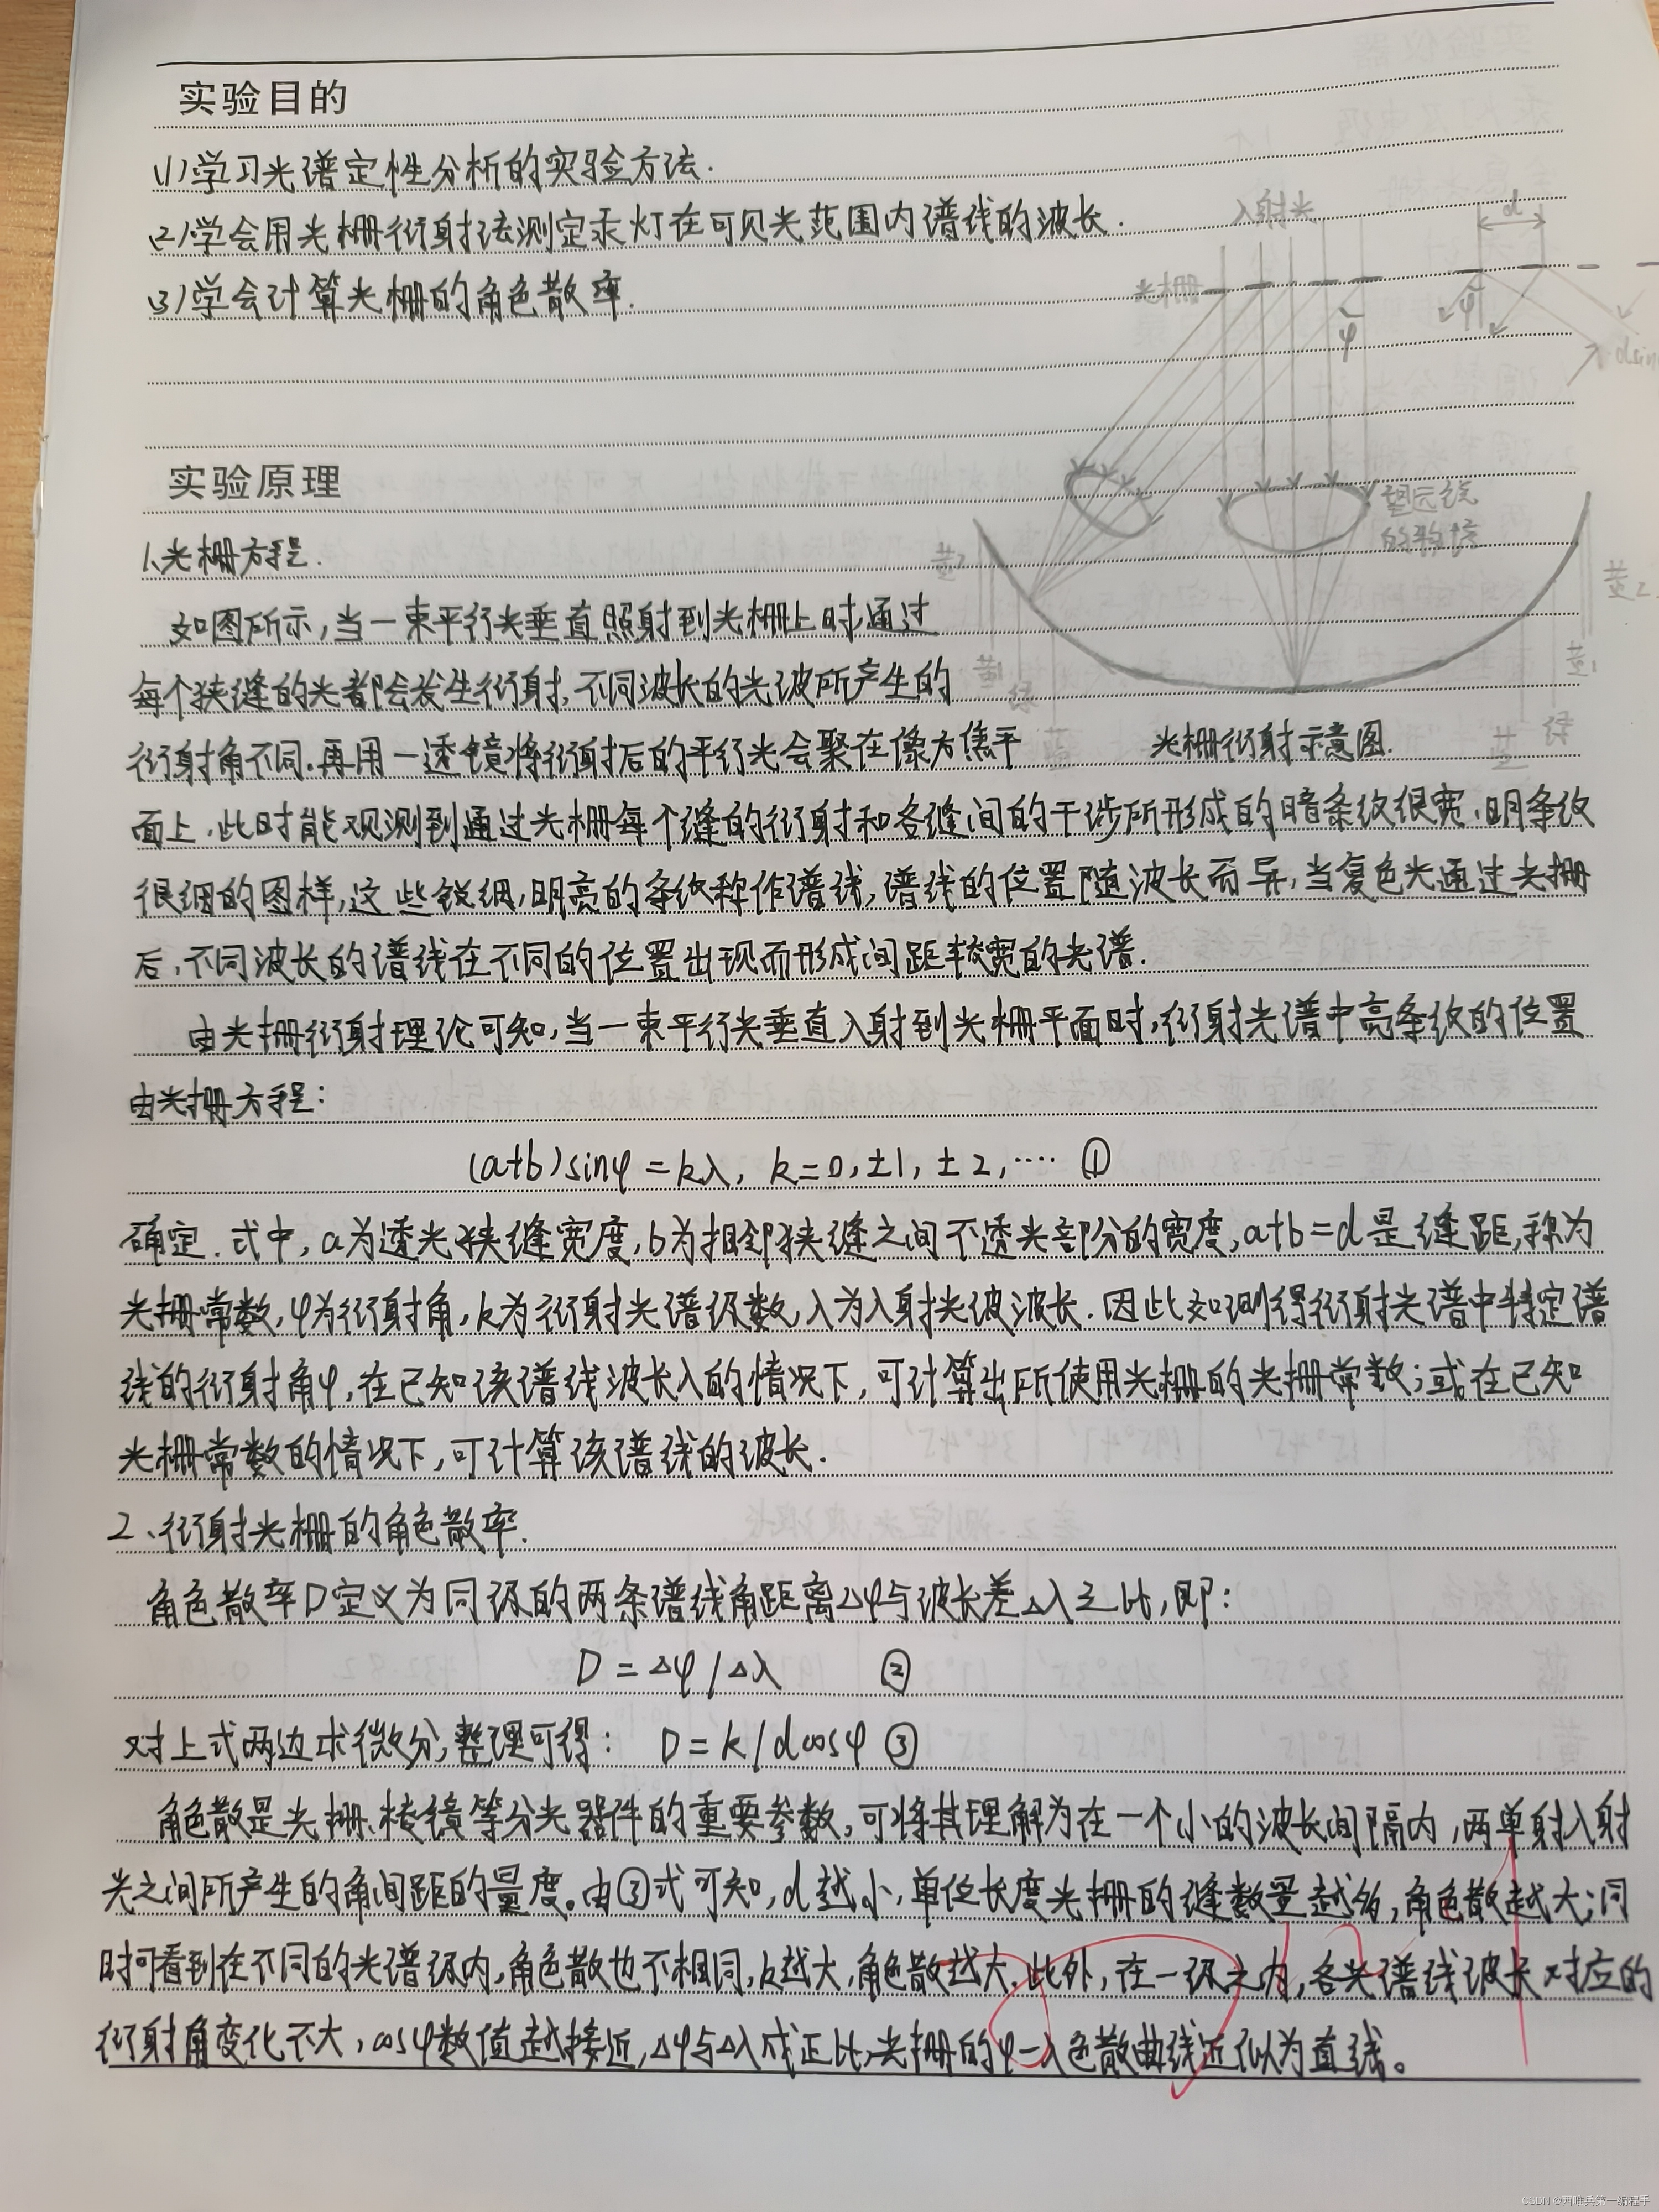 实验目的
(1)学习光谱定性分析的实验方法.
(2)学会用光栅衍射法测定汞灯在可见光范围内谱线的波长.
(3)学会计算光栅的角色散率.
入射光
d
光栅
φ
φ
实验原理
望远镜
的物镜
黄2
黄2
1.光栅方程.
如图所示,当一束平行光垂直照射到光栅上时,通过
黄1
黄1
每个狭缝的光都会发生衍射,不同波长的光波所产生的
绿
绿
衍射角不同.再用一透镜将衍射后的平行光会聚在像方焦平
蓝
光栅衍射示意图.
蓝
面上.此时能观测到通过光栅每个缝的衍射和各缝间的干涉所形成的暗条纹很宽,明条纹
很细的图样,这些锐细,明亮的条纹称作谱线,谱线的位置随波长而异,当复色光通过光栅
后,不同波长的谱线在不同的位置出现而形成间距较宽的光谱.
由光栅衍射理论可知,当一束平行光垂直入射到光栅平面时,衍射光谱中亮条纹的位置
由光栅方程:
(a+b)sinφ=kλ, k=0,±1,±2,.... ①
确定.式中,a为透光狭缝宽度,b为相邻狭缝之间不透光部分的宽度,a+b=d是缝距,称为
光栅常数,φ为衍射角,k为衍射光谱级数,λ为入射光波波长.因此如测得衍射光谱中特定谱
线的衍射角φ,在已知该谱线波长λ的情况下,可计算出所使用光栅的光栅常数;或在已知
光栅常数的情况下,可计算该谱线的波长.
2、衍射光栅的角色散率.
角色散率D定义为同级的两条谱线角距离△φ与波长差△λ之比,即:
D=△φ/△λ ②
对上式两边求微分,整理可得: D=k/dcosφ ③
角色散是光栅、棱镜等分光器件的重要参数,可将其理解为在一个小的波长间隔内,两单射入射
光之间所产生的角间距的量度。由③式可知,d越小,单位长度光栅的缝数量越多,角色散越大;同
时可看到在不同的光谱级内,角色散也不相同,k越大,角色散越大.此外,在一级之内,各光谱线波长对应的
衍射角变化不大,cosφ数值越接近,△φ与△λ成正比,光栅的φ-λ色散曲线近似为直线。
CSDN @西唯兵第一编程手